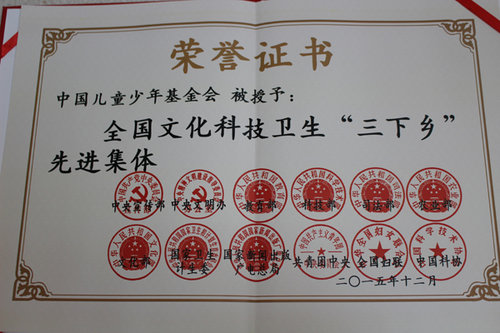 荣誉证书
中国儿童少年基金会 被授予：
全国文化科技卫生“三下乡”
先进集体
中央宣传部 中央文明办 教育部 科技部 司法部 农业部
文化部 国家卫生计生委 国家新闻出版广电总局 共青团中央 全国妇联 中国科协
二〇一五年十二月